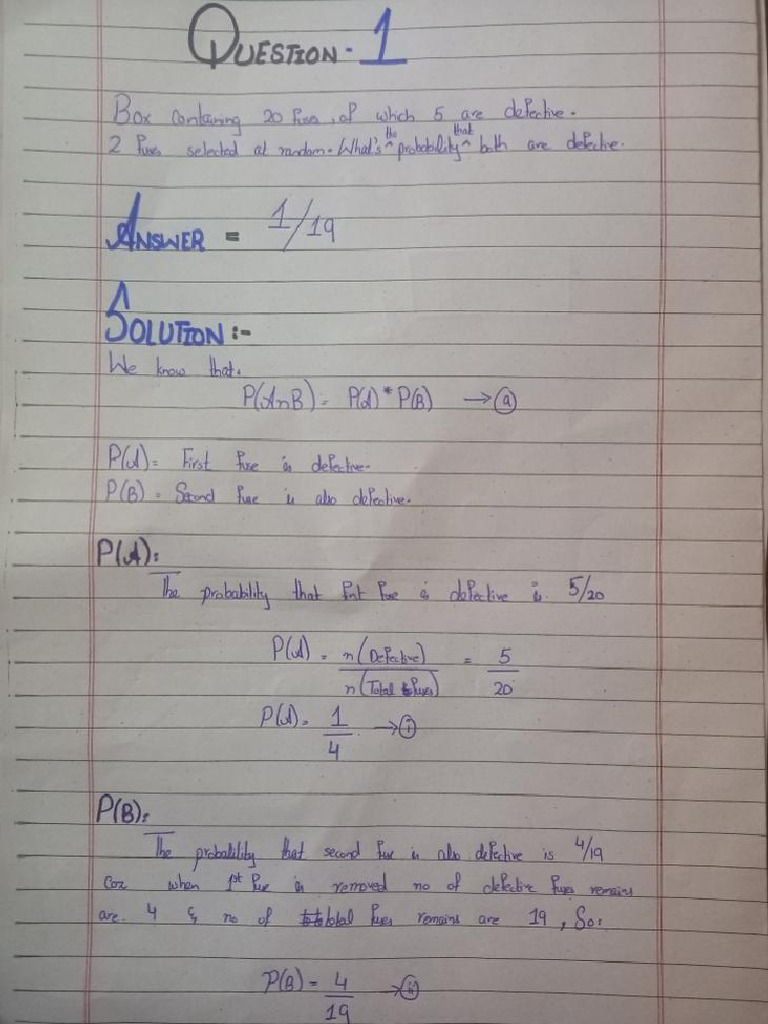 QUESTION - 1
Box containing 20 fuses, of which 5 are defective.
2 fuses selected at random. What's the probability that both are defective.
ANSWER = 1/19
SOLUTION :-
We know that.
P(A∩B) = P(A) * P(B) → (a)
P(A) = First fuse is defective.
P(B) = Second fuse is also defective.
P(A):
The probability that first fuse is defective is 5/20
P(A) = n(Defective) / n(Total fuses) = 5/20
P(A) = 1/4 → (i)
P(B):
The probability that second fuse is also defective is 4/19
Coz when 1st fuse is removed no of defective fuses remains
are 4 & no of total fuses remains are 19, So:
P(B) = 4/19 → (ii)